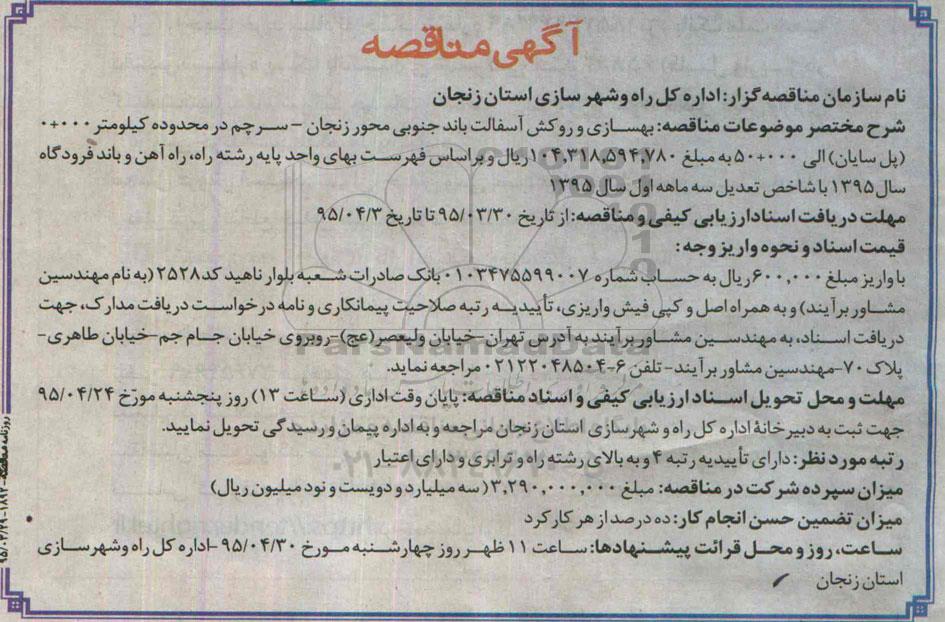 آگهی مناقصه
نام سازمان مناقصه گزار: اداره کل راه وشهر سازی استان زنجان
شرح مختصر موضوعات مناقصه: بهسازی و روکش آسفالت باند جنوبی محور زنجان – سرچم در محدوده کیلومتر ۰+۰۰۰
(پل سایان) الی ۵۰+۰۰۰ به مبلغ ۱۰۴,۳۱۸,۵۹۴,۷۸۰ ریال و براساس فهرست بهای واحد پایه رشته راه، راه آهن و باند فرودگاه
سال ۱۳۹۵ با شاخص تعدیل سه ماهه اول سال ۱۳۹۵
مهلت دریافت اسناد ارزیابی کیفی و مناقصه: از تاریخ ۹۵/۰۳/۳۰ تا تاریخ ۹۵/۰۴/۳
قیمت اسناد و نحوه واریز وجه:
با واریز مبلغ ۶۰۰,۰۰۰ ریال به حساب شماره ۰۱۰۳۴۷۵۵۹۹۰۰۷ بانک صادرات شعبه بلوار ناهید کد ۲۵۲۸ (به نام مهندسین
مشاور برآیند) و به همراه اصل و کپی فیش واریزی، تأییدیه رتبه صلاحیت پیمانکاری و نامه درخواست دریافت مدارک، جهت
دریافت اسناد، به مهندسین مشاور برآیند به آدرس تهران -خیابان ولیعصر (عج)- روبروی خیابان جام جم-خیابان طاهری-
پلاک ۷۰-مهندسین مشاور برآیند- تلفن ۶-۰۲۱۲۲۰۴۸۵۰۴ مراجعه نماید.
مهلت و محل تحویل اسناد ارزیابی کیفی و اسناد مناقصه: پایان وقت اداری (ساعت ۱۳) روز پنجشنبه مورّخ ۹۵/۰۴/۲۴
جهت ثبت به دبیر خانهٔ اداره کل راه و شهر سازی استان زنجان مراجعه و به اداره پیمان و رسیدگی تحویل نمایید.
رتبه مورد نظر: دارای تأییدیه رتبه ۴ و به بالای رشته راه و ترابری و دارای اعتبار
میزان سپرده شرکت در مناقصه: مبلغ ۳,۲۹۰,۰۰۰,۰۰۰ (سه میلیارد و دویست و نود میلیون ریال)
میزان تضمین حسن انجام کار: ده درصد از هر کار کرد
ساعت، روز و محل قرائت پیشنهادها: ساعت ۱۱ ظهر روز چهارشنبه مورخ ۹۵/۰۴/۳۰ -اداره کل راه وشهر سازی
استان زنجان
ParsNamadData